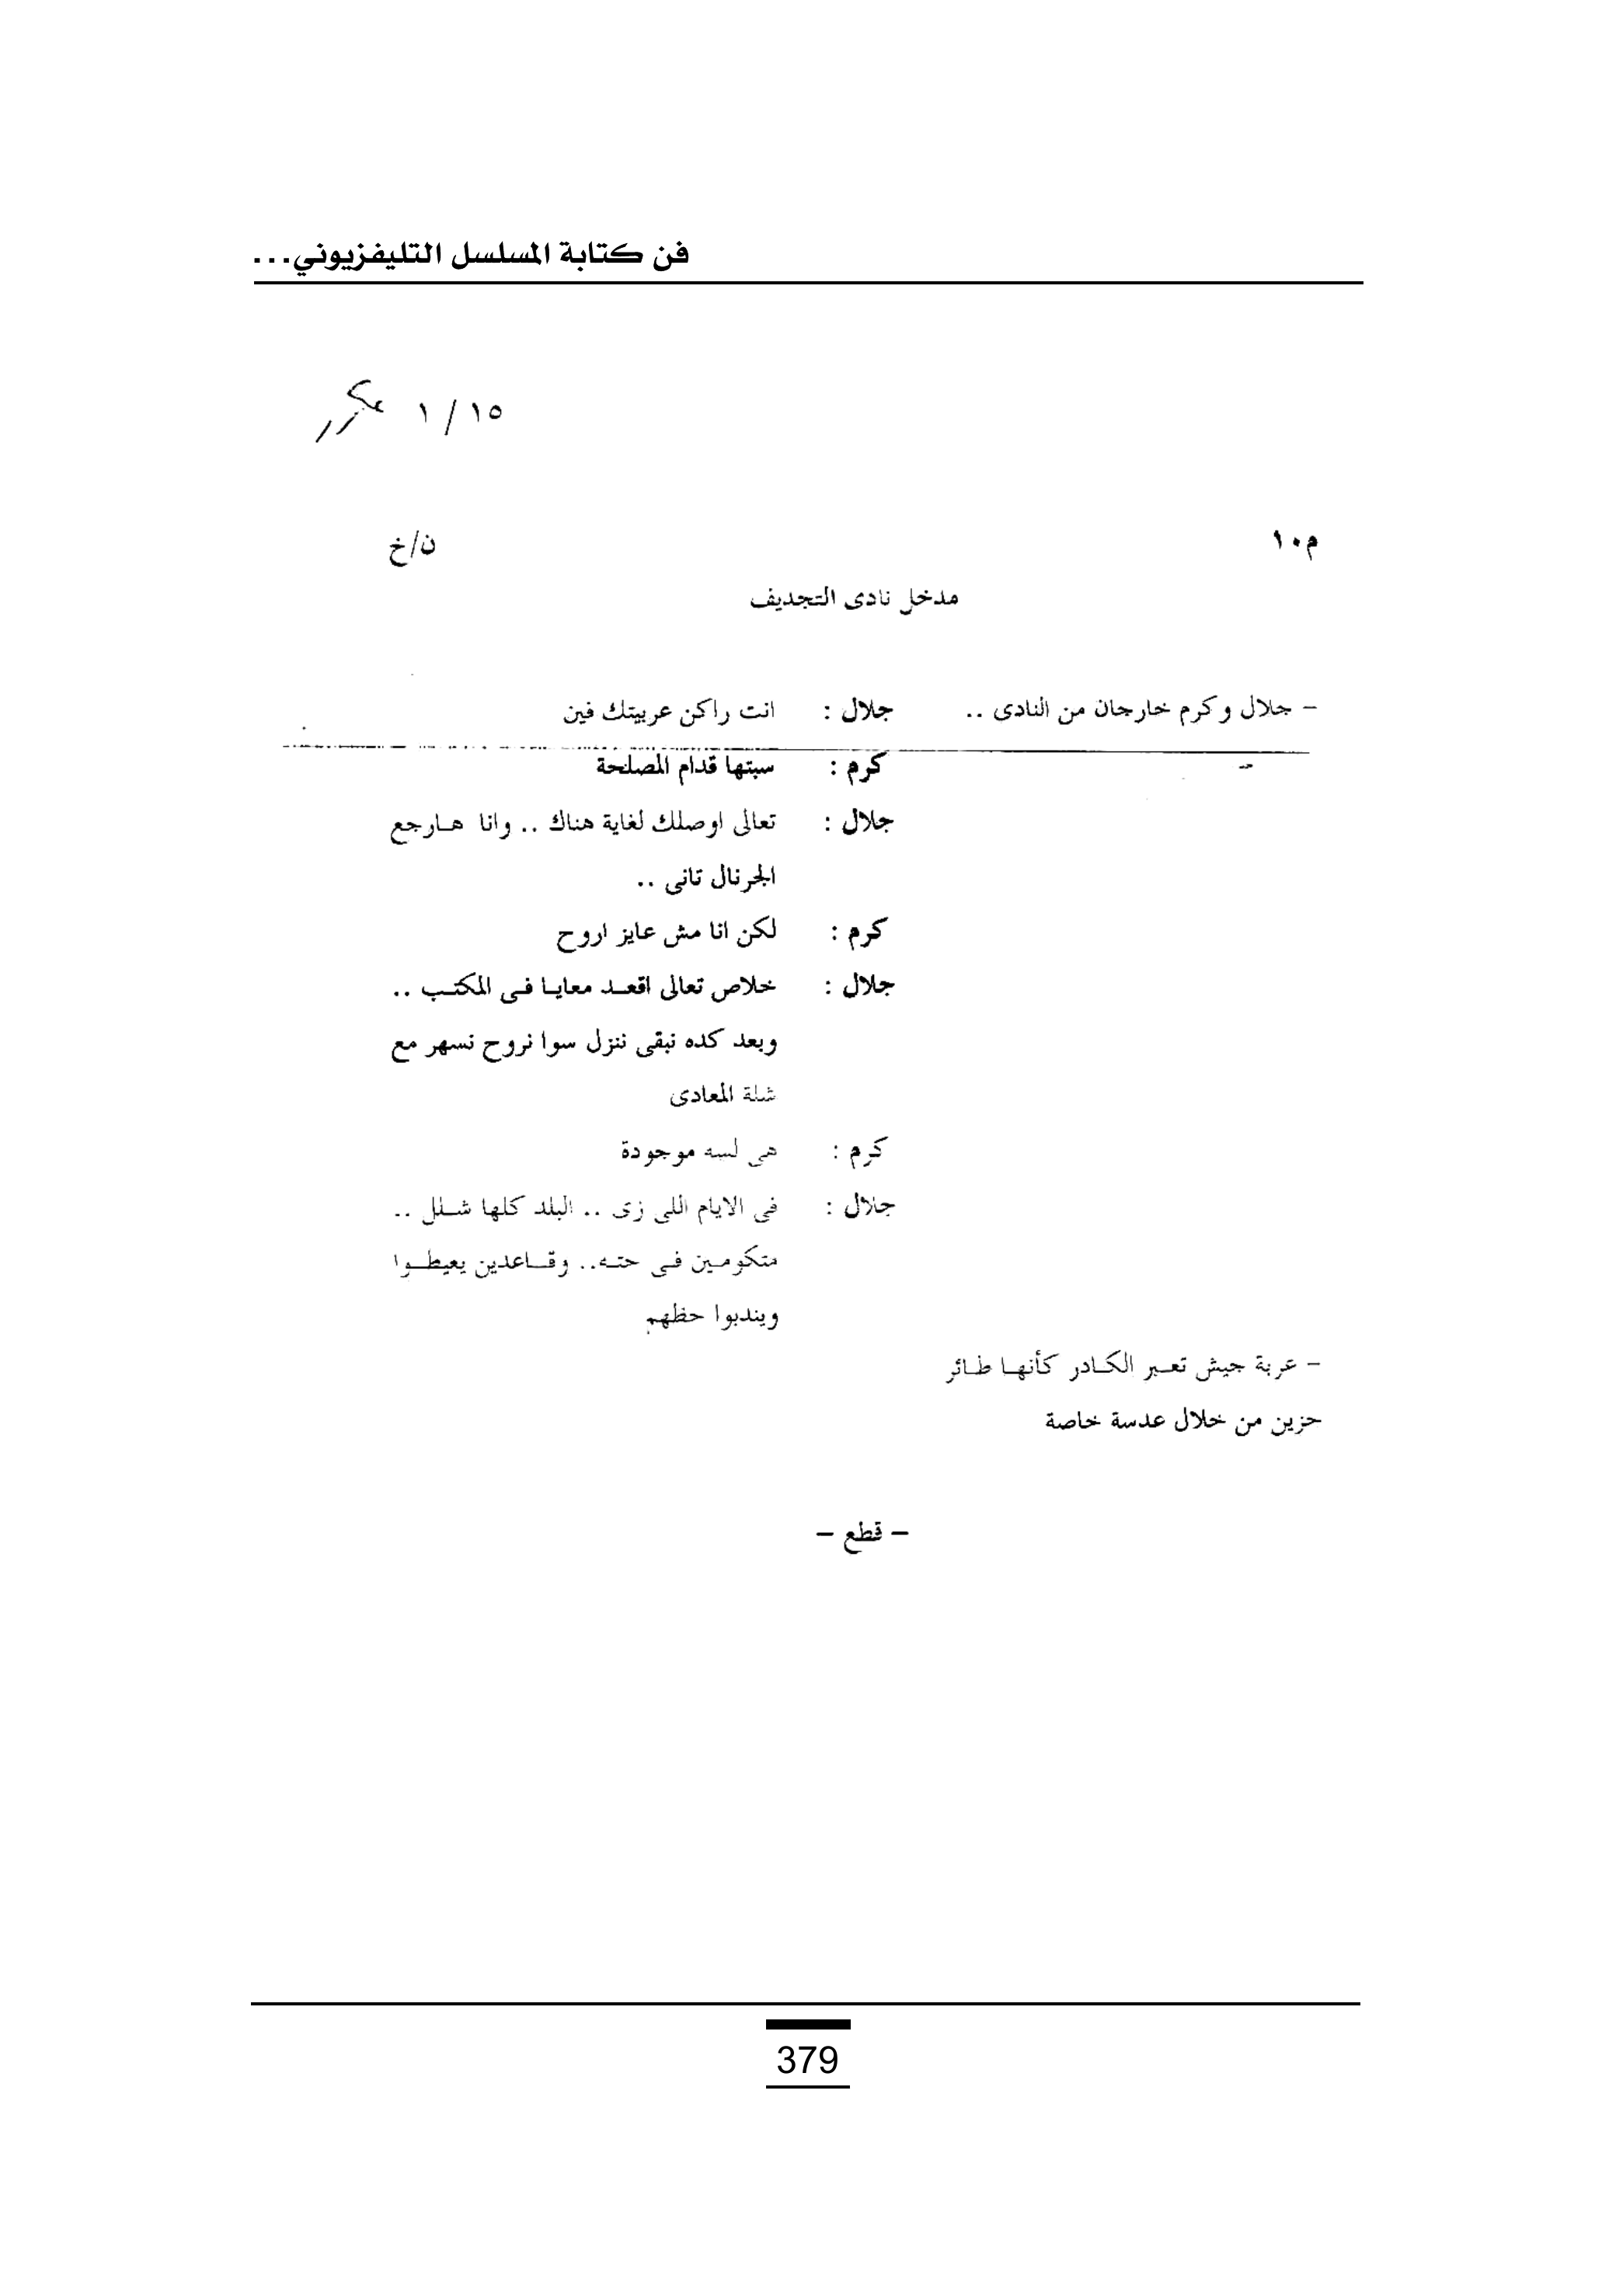 فن كتابة المسلسل التليفزيوني...
١٥ / ١ مكرر
م١٠ ن/خ
مدخل نادى التجديف
– جلال وكرم خارجان من النادى .. جلال : انت راكن عربيتك فين
كرم : سبتها قدام المصلحة
جلال : تعالى اوصلك لغاية هناك .. وانا هـارجع
الجرنال تانى ..
كرم : لكن انا مش عايز اروح
جلال : خلاص تعالى اقعـد معايـا فـى المكتـب ..
وبعد كده نبقى ننزل سوا نروح نسهر مع
شلة المعادى
كرم : هى لسه موجودة
جلال : فى الايام اللى زى .. البلد كلها شـلل ..
متكومـين فـى حتـه.. وقـاعدين يعيطـوا
ويندبوا حظهم
– عربة جيش تعـبر الكـادر كأنهـا طـائر
حزين من خلال عدسة خاصة
– قطع –
379